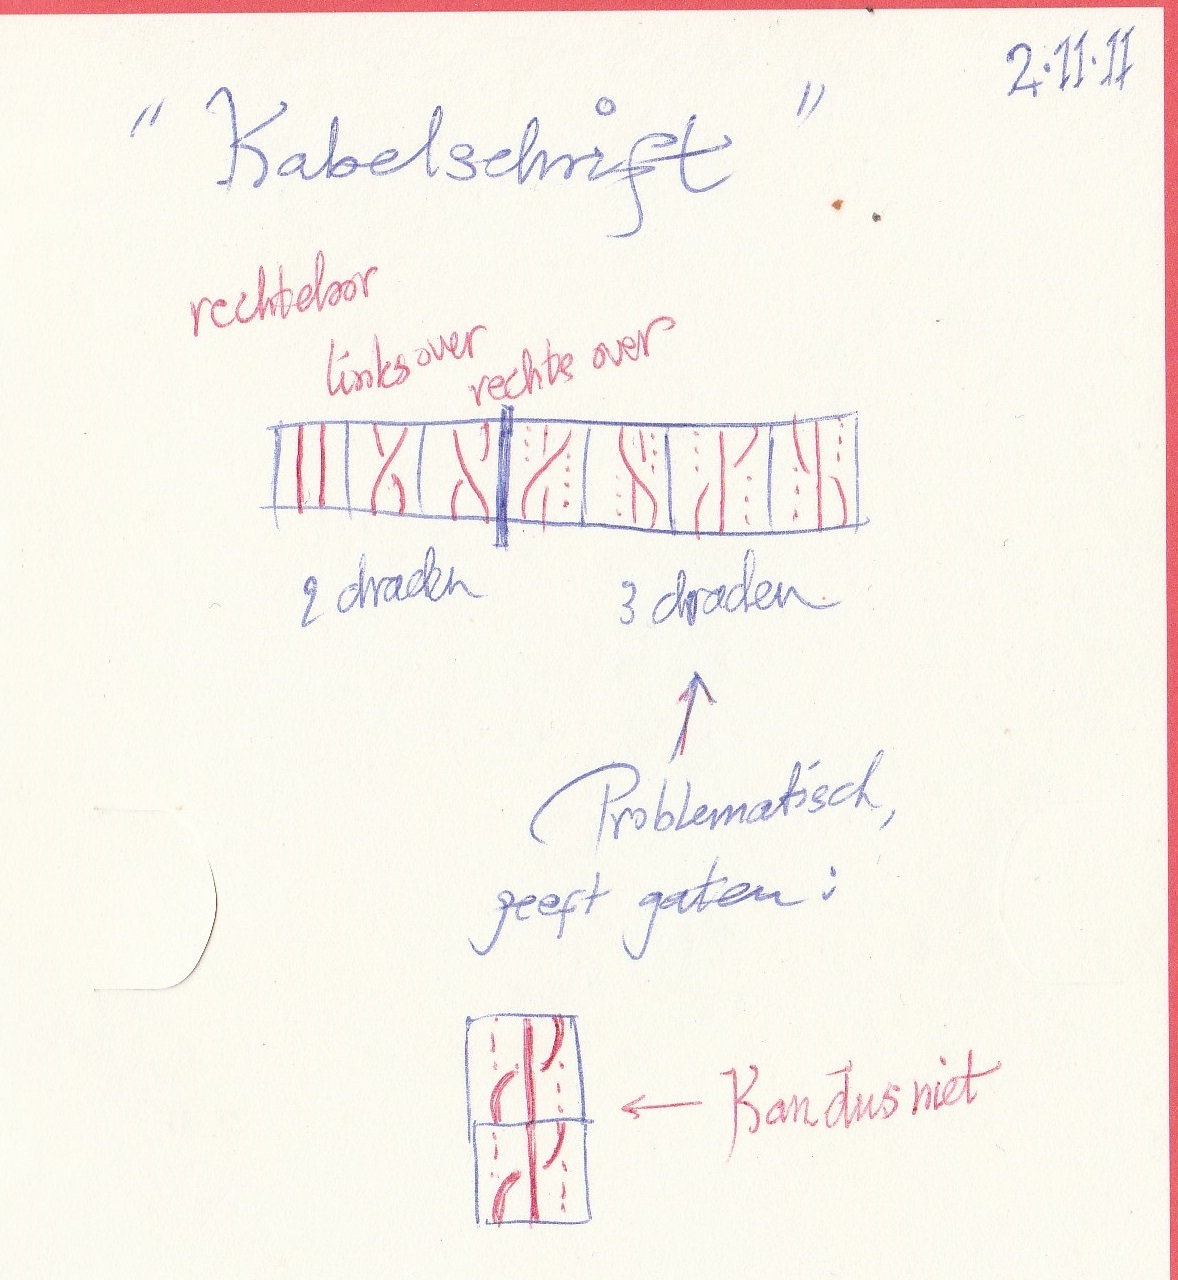 2.11.11
"Kabelschrift"
rechtdoor
linksover
rechts over
2 draden
3 draden
Problematisch,
geeft gaten:
Kan dus niet